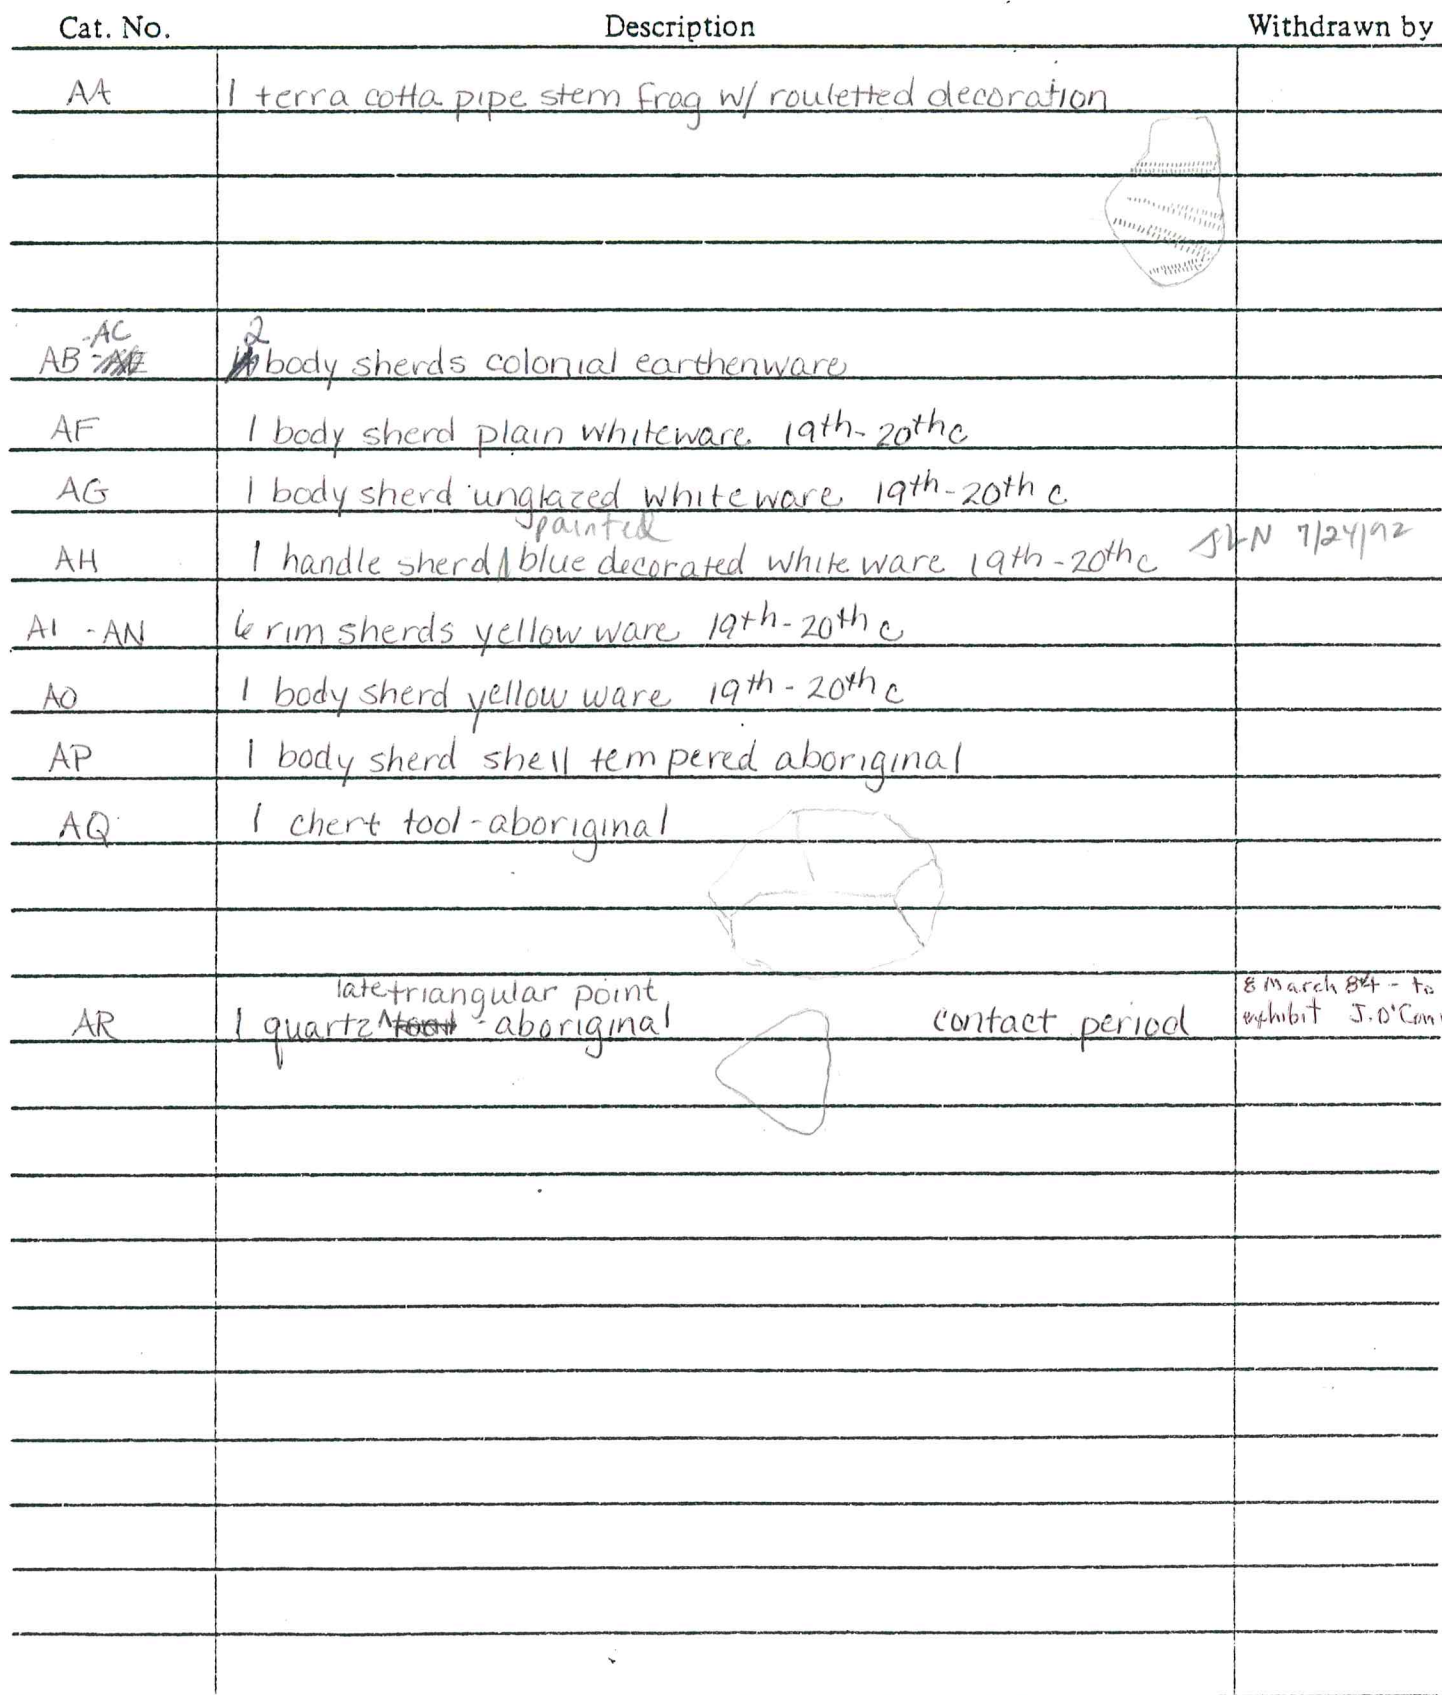 Cat. No. Description Withdrawn by
AA 1 terra cotta pipe stem frag w/ rouletted decoration
-AC 2
AB body sherds colonial earthenware
AF 1 body sherd plain whiteware 19th-20th c
AG 1 body sherd unglazed whiteware 19th-20th c
painted
AH 1 handle sherd blue decorated white ware 19th-20th c JLN 7/24/92
AI - AN 6 rim sherds yellow ware 19th-20th c
AO 1 body sherd yellow ware 19th-20th c
AP 1 body sherd shell tempered aboriginal
AQ 1 chert tool-aboriginal
late triangular point 8 March 84 - to
AR 1 quartz tool - aboriginal contact period exhibit J. O'Con